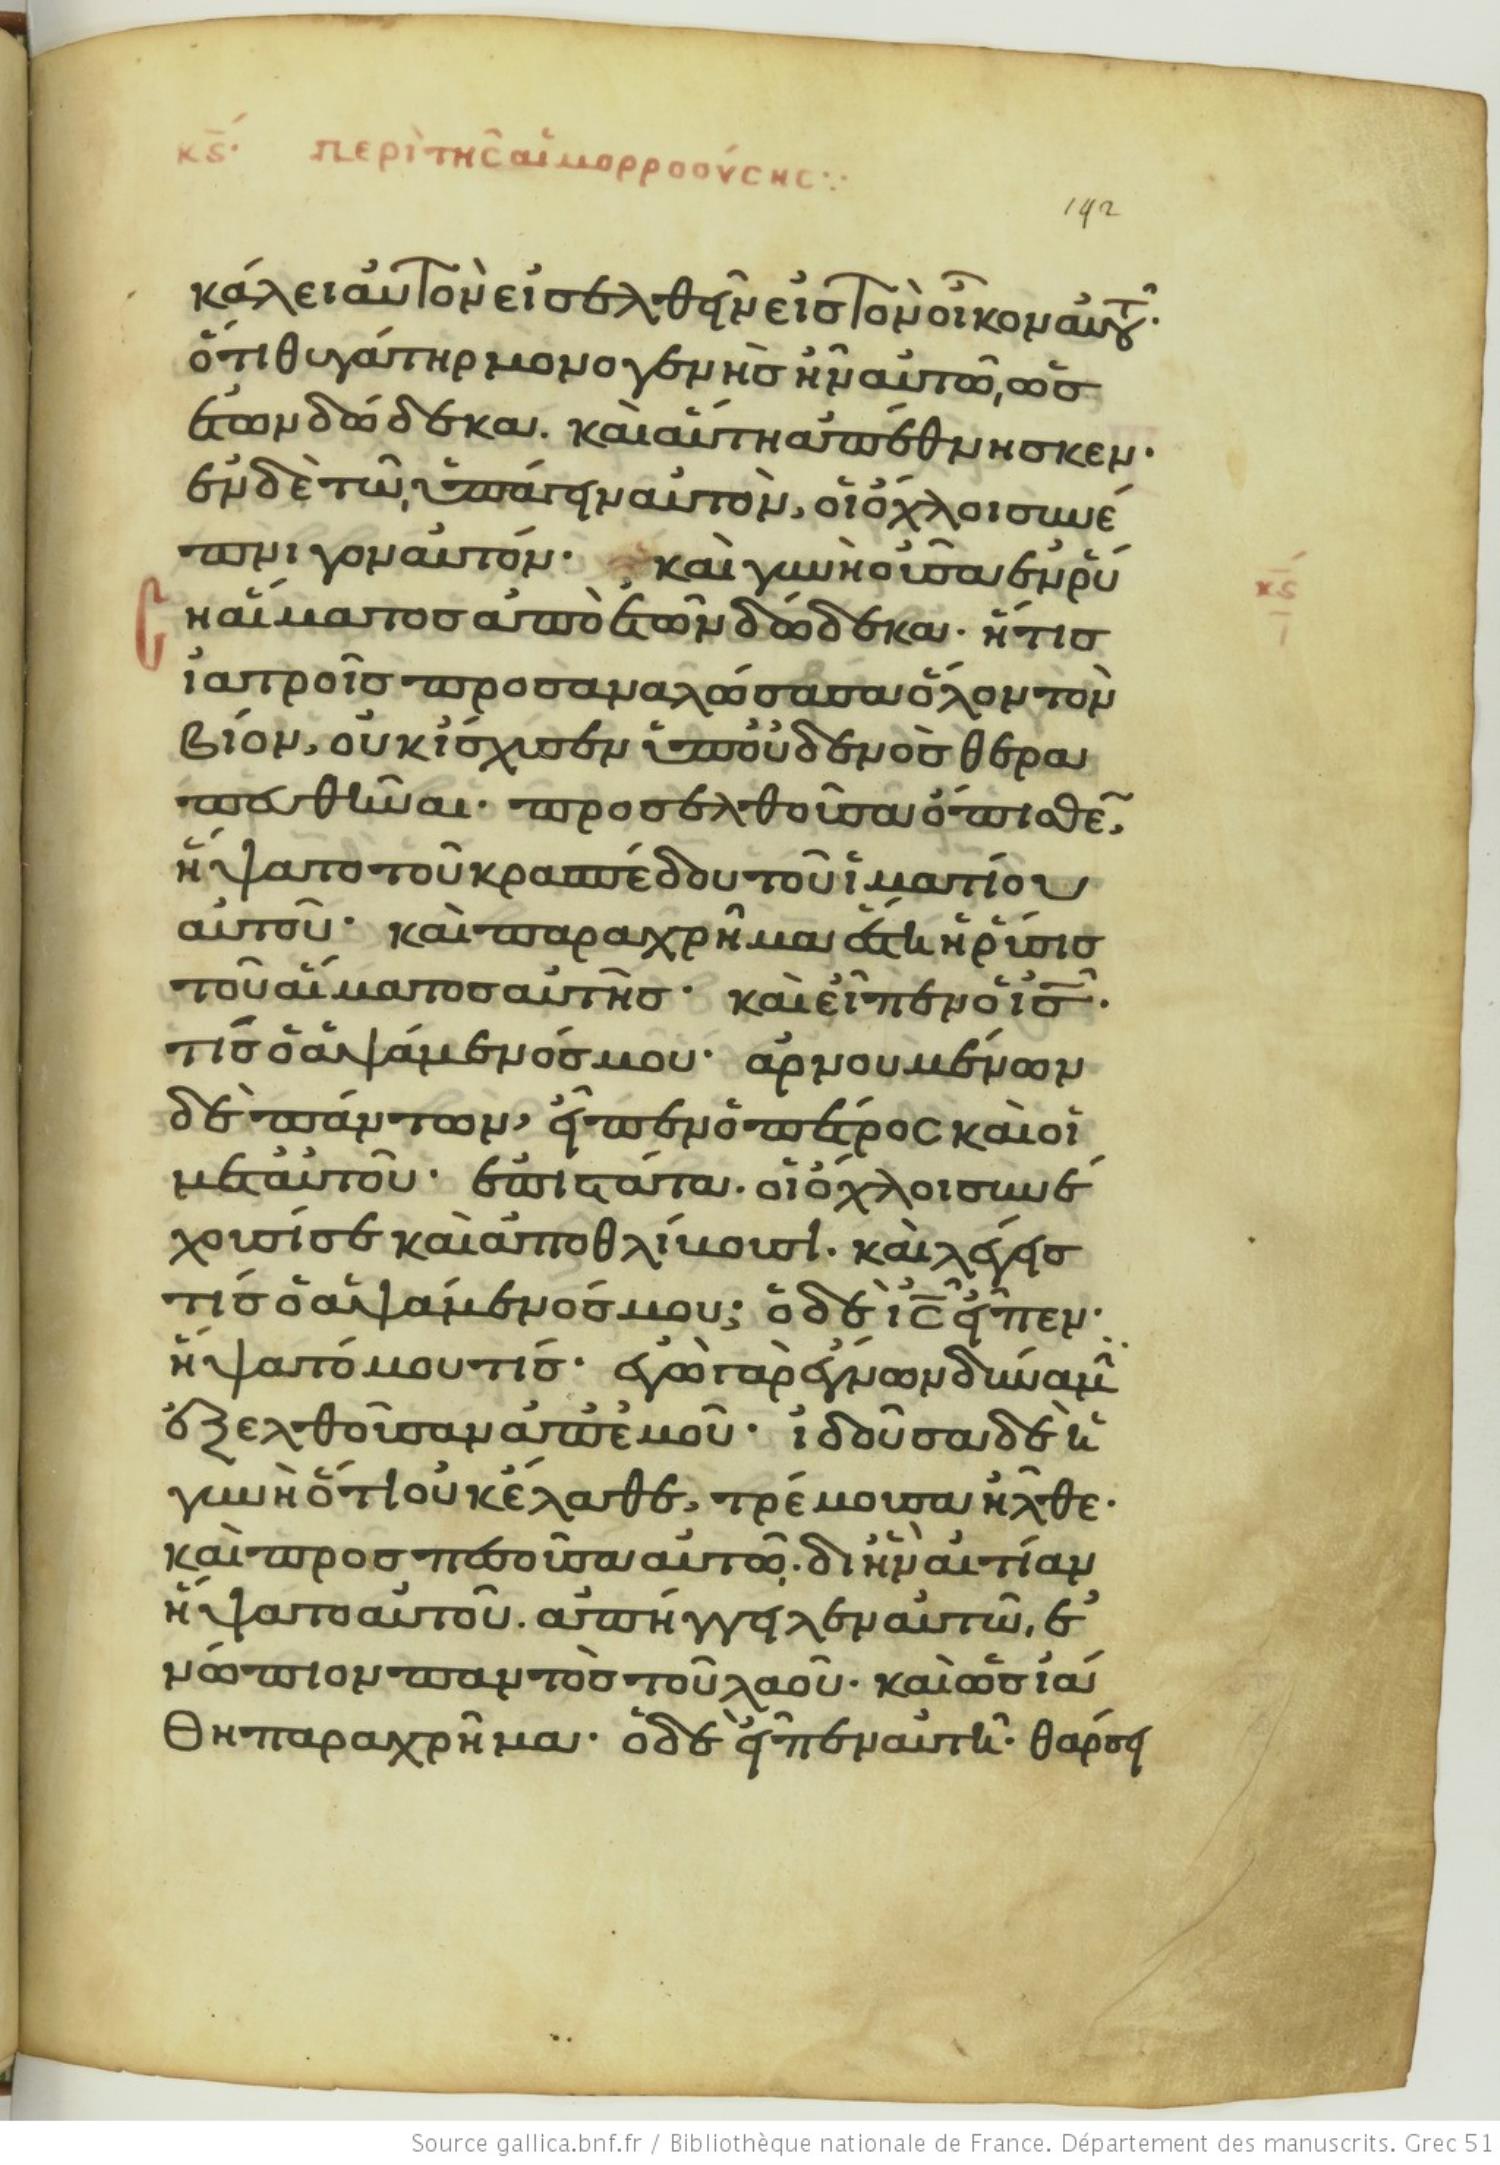 κϛ´· περὶ τῆς αἱμορροούσης ⁘
192
κάλει αὐτὸν εἰσελθεῖν εἰς τὸν οἶκον αὐτοῦ·
ὅτι θυγάτηρ μονογενὴς ἦν αὐτῶ, ὡς
ἐτῶν δώδεκα. καὶ αὕτη ἀπέθνησκεν·
ἐν δὲ τῶ, ὑπάγειν αὐτὸν, οἱ ὄχλοι συνέ
πνιγον αὐτόν· καὶ γυνὴ οὖσα ἐν ῥύ
κϛ
ι
η αἵματος ἀπὸ ἐτῶν δώδεκα· ἥτις
ἰατροῖς προσαναλώσασα ὅλον τὸν
βίον, οὐκ ἴσχυσεν ὑπ' οὐδενὸς θερα
πευθῆναι· προσελθοῦσα ὄπισθεν,
ἥψατο τοῦ κρασπέδου τοῦ ἱματίου
αὐτοῦ· καὶ παραχρῆμα ἔστη ἡ ῥύσις
τοῦ αἵματος αὐτῆς· καὶ εἶπεν ὁ ἰς·
τίς ὁ ἁψάμενός μου· ἀρνουμένων
δὲ πάντων, εἶπεν ὁ πέτρος καὶ οἱ
μετ' αὐτοῦ· ἐπιστάτα. οἱ ὄχλοι συνέ
χουσί σε καὶ ἀποθλίβουσι. καὶ λέγεις
τίς ὁ ἁψάμενός μου; ὁ δὲ ις εἶπεν·
ἥψατό μου τίς· ἐγὼ γὰρ ἔγνων δύναμιν
ἐξελθοῦσαν ἀπ' ἐμοῦ· ἰδοῦσα δὲ ἡ
γυνὴ ὅτι οὐκ ἔλαθε, τρέμουσα ἦλθε·
καὶ προσπεσοῦσα αὐτῶ. δι ἣν αἰτίαν
ἥψατο αὐτοῦ. ἀπήγγειλεν αὐτῶ, ἐ
νώπιον παντὸς τοῦ λαοῦ· καὶ ὡς ἰά
θη παραχρῆμα· ὁ δὲ εἶπεν αὐτῆ· θάρσει
Source gallica.bnf.fr / Bibliothèque nationale de France. Département des manuscrits. Grec 51